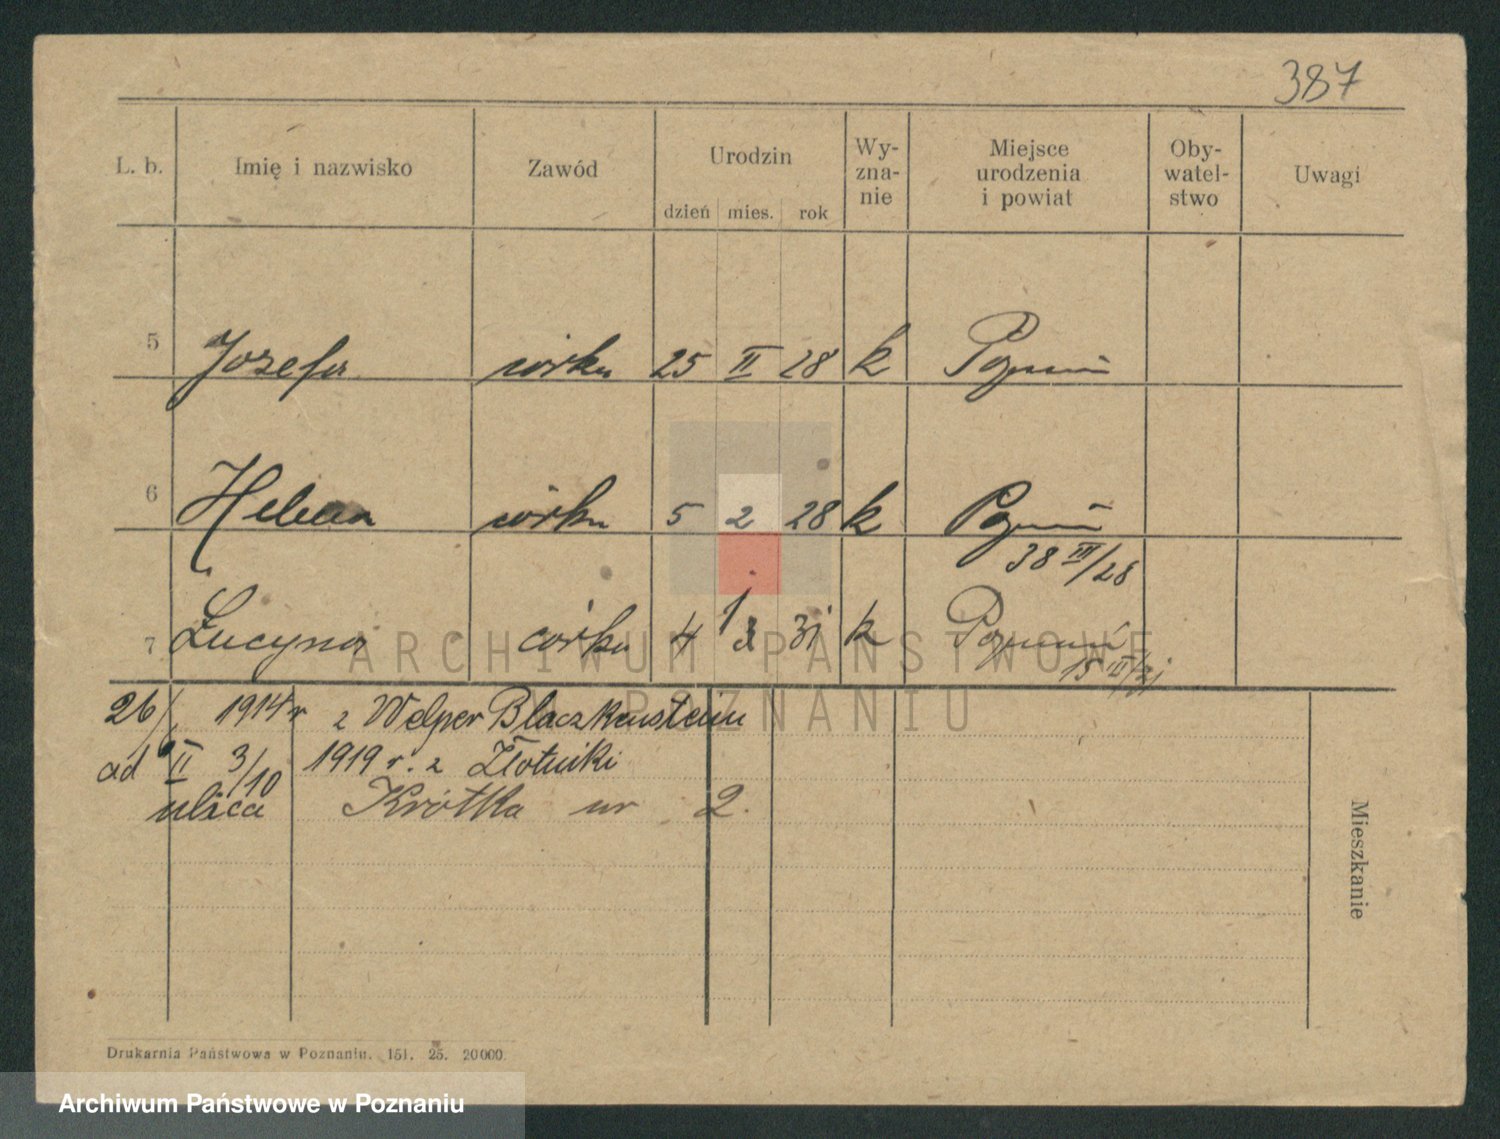 387
L. b. Imię i nazwisko Zawód Urodzin dzień mies. rok Wy-zna-nie Miejsce urodzenia i powiat Oby-watel-stwo Uwagi
5 Jozefa córka 25 II 28 k Poznań
6 Helena córka 5 2 28 k Poznań
38 III/28
7 Lucyna córka 4 3 31 k Poznań
15 III/31
ARCHIWUM PAŃSTWOWE
W POZNANIU
26/ 1914 r z Welper Blaczkenstein
od II 3/10 1919 r. z Złotniki
ulica Krótka nr 2.
Mieszkanie
Drukarnia Państwowa w Poznaniu. 151. 25. 20000.
Archiwum Państwowe w Poznaniu